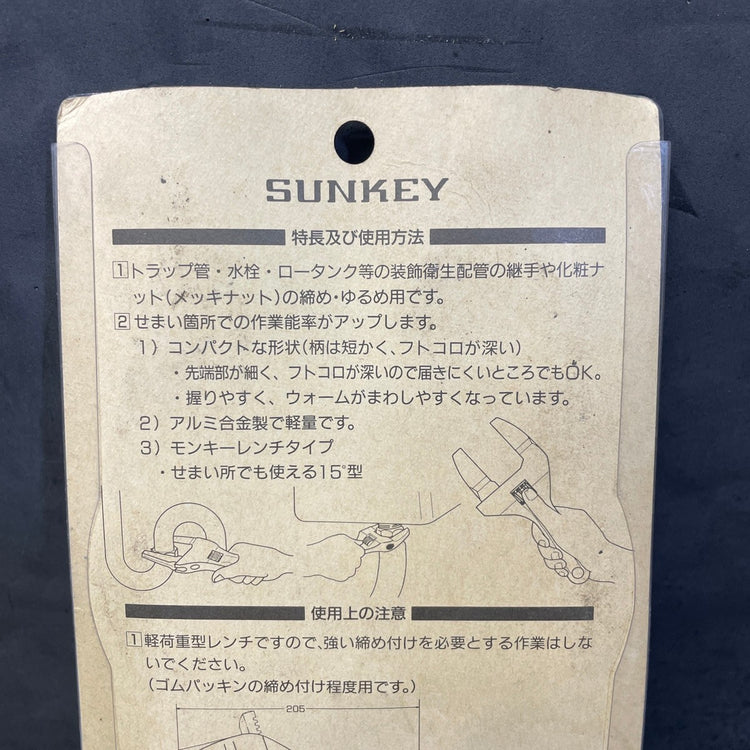 SUNKEY
特長及び使用方法
1トラップ管・水栓・ロータンク等の装飾衛生配管の継手や化粧ナ
ット(メッキナット)の締め・ゆるめ用です。
2せまい箇所での作業能率がアップします。
1) コンパクトな形状(柄は短かく、フトコロが深い)
・先端部が細く、フトコロが深いので届きにくいところでもOK。
・握りやすく、ウォームがまわしやすくなっています。
2) アルミ合金製で軽量です。
3) モンキーレンチタイプ
・せまい所でも使える15°型
使用上の注意
1軽荷重型レンチですので、強い締め付けを必要とする作業はしな
いでください。
(ゴムパッキンの締め付け程度用です。)
205